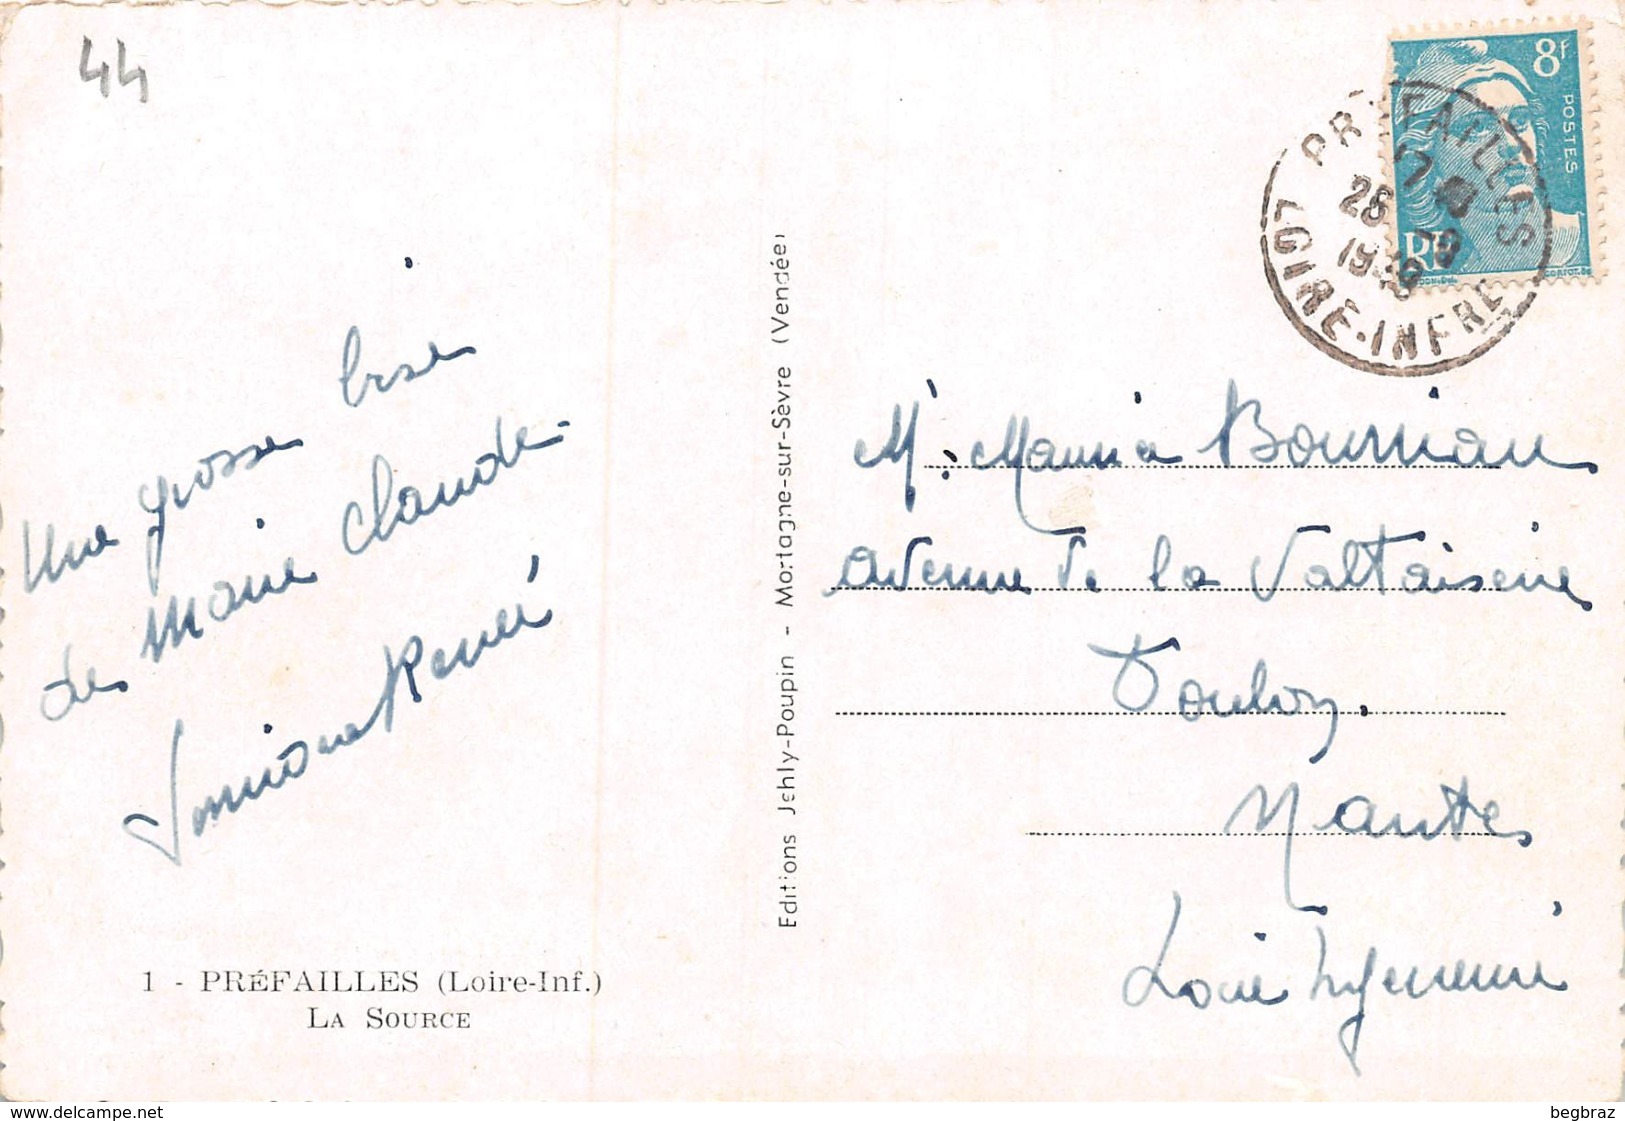 44
une grosse bise
de marie claude
René
1 - PRÉFAILLES (Loire-Inf.)
LA SOURCE
Editions Jehly-Poupin - Mortagne-sur-Sèvre (Vendée)
8F
POSTES
RF
PRÉFAILLES
28
LOIRE-INFRE
Mr: Maurice
avenue de la
Nantes
Loire Inférieure
www.delcampe.net
begbraz